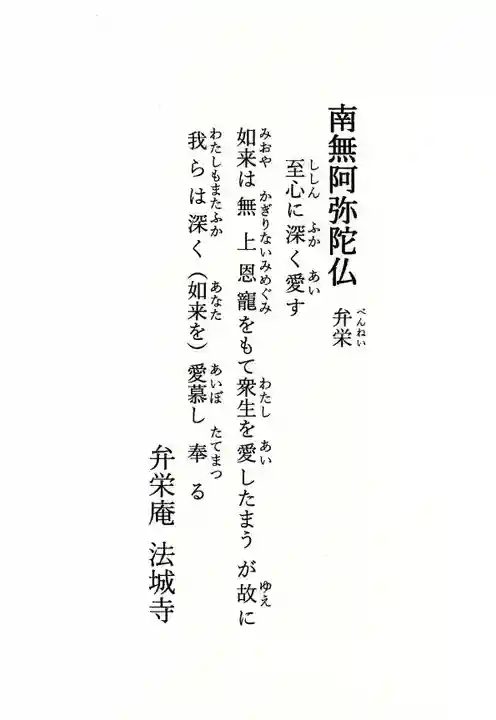 南無阿弥陀仏 弁栄
べんねい
至心に深く愛す
ししん ふか あい
如来は無上恩寵をもて衆生を愛したまうが故に
みおや かぎりないみめぐみ わたし あい ゆえ
我らは深く(如来を)愛慕し奉る
わたしもまたふか あなた あいぼ たてまつ
弁栄庵 法城寺